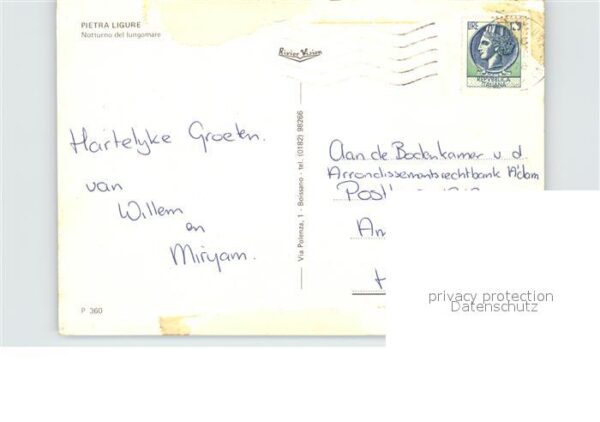 PIETRA LIGURE
Notturno del lungomare
Rivier Vision
LIRE
REPVBBLICA
ITALIANA
Hartelijke Groeten.
van
Willem
en
Miryam.
Via Polenza, 1 - Boissano - tel. (0182) 98266
Aan de Bodenkamer v d
Arrondissementsrechtbank A'dam
Post
Am
P 360
privacy protection
Datenschutz